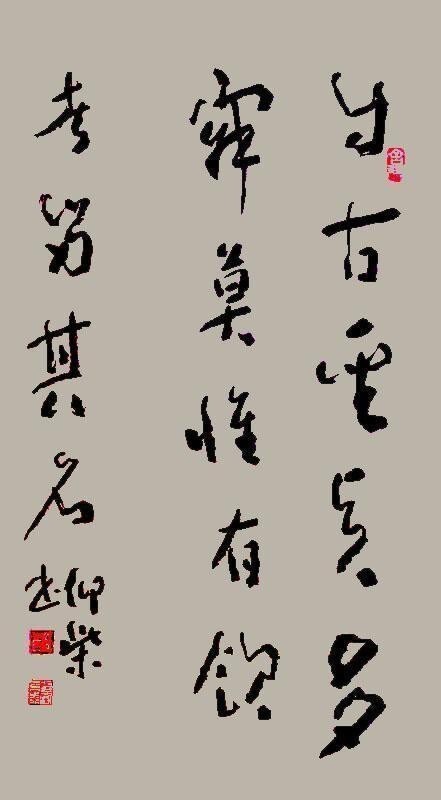 自古圣贤多
寂莫惟有饮
者留其名
仰柴书